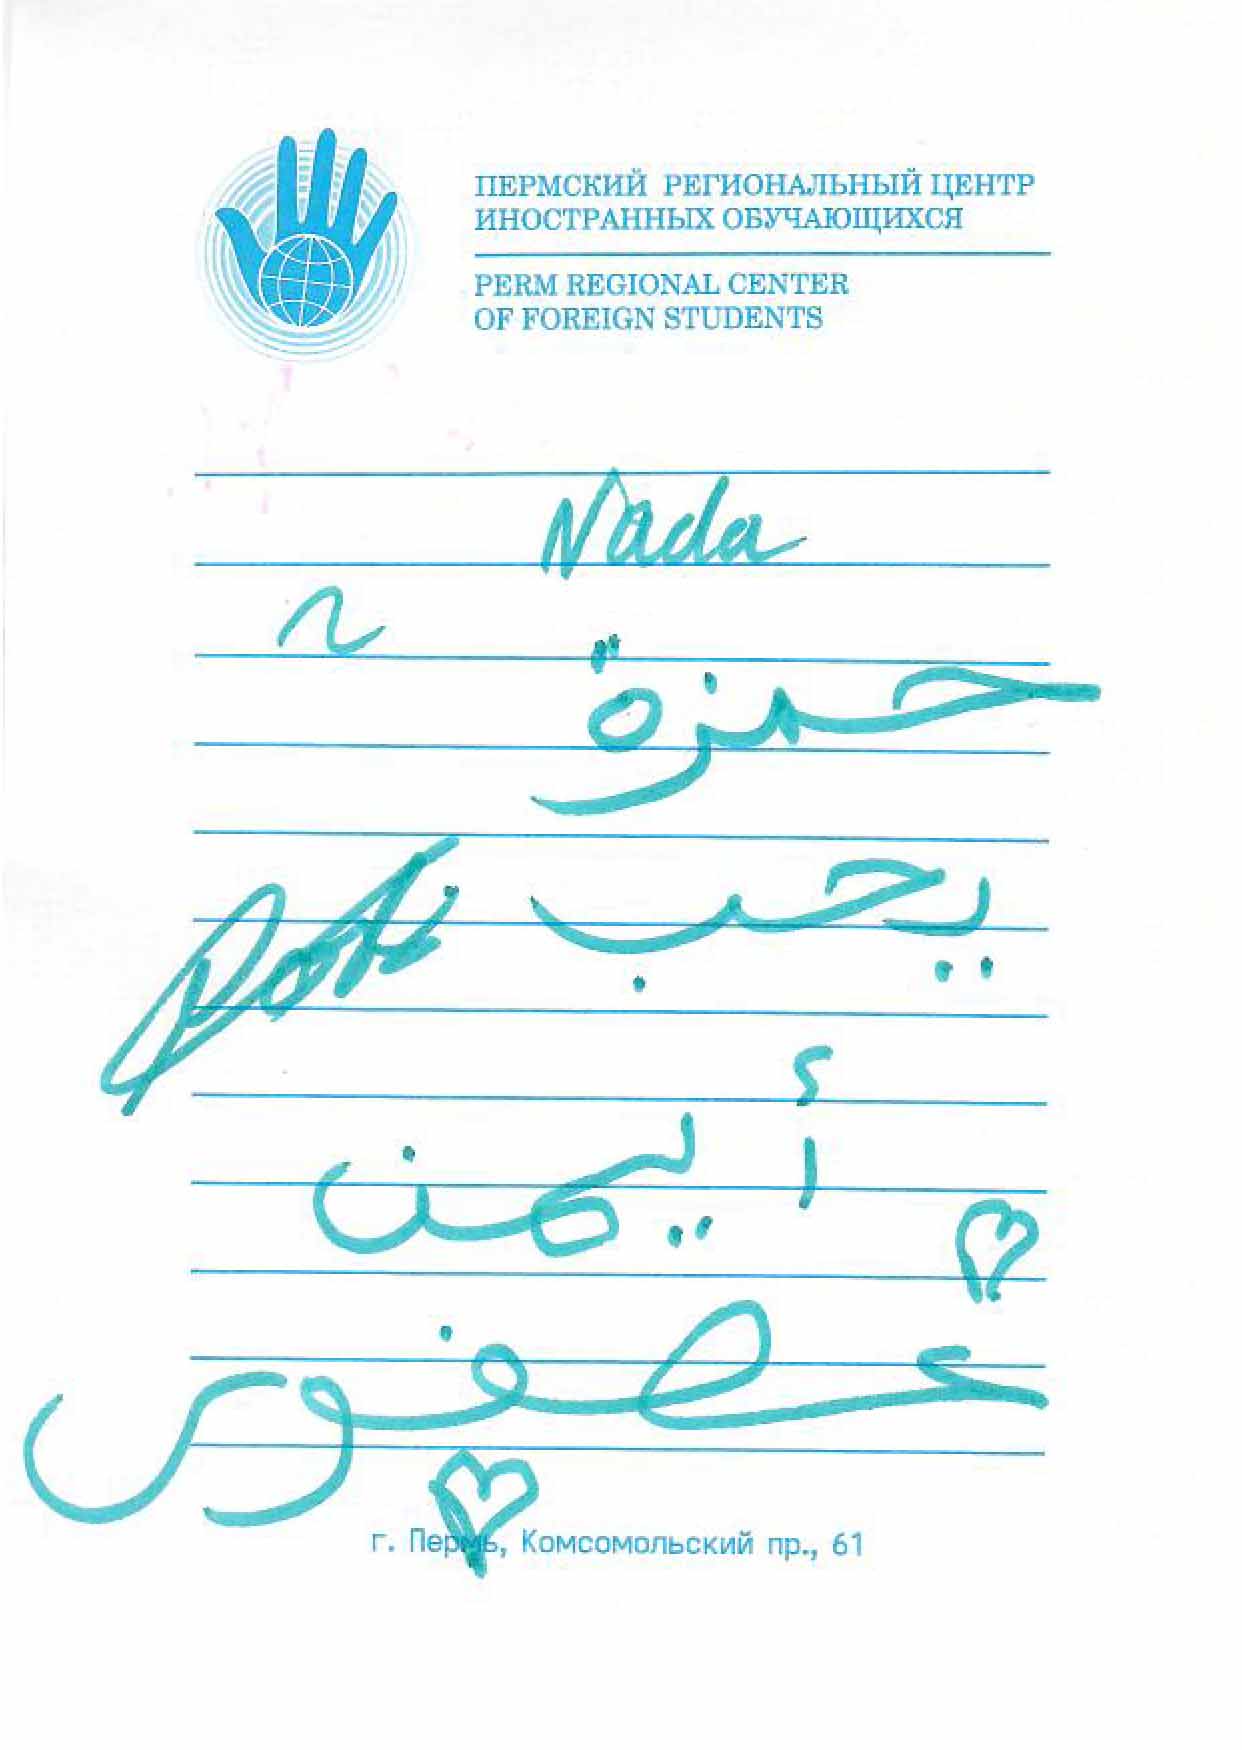 ПЕРМСКИЙ РЕГИОНАЛЬНЫЙ ЦЕНТР
ИНОСТРАННЫХ ОБУЧАЮЩИХСЯ
PERM REGIONAL CENTER
OF FOREIGN STUDENTS
Nada
حمزة
يحب
أيمن
عصفور
г. Пермь, Комсомольский пр., 61